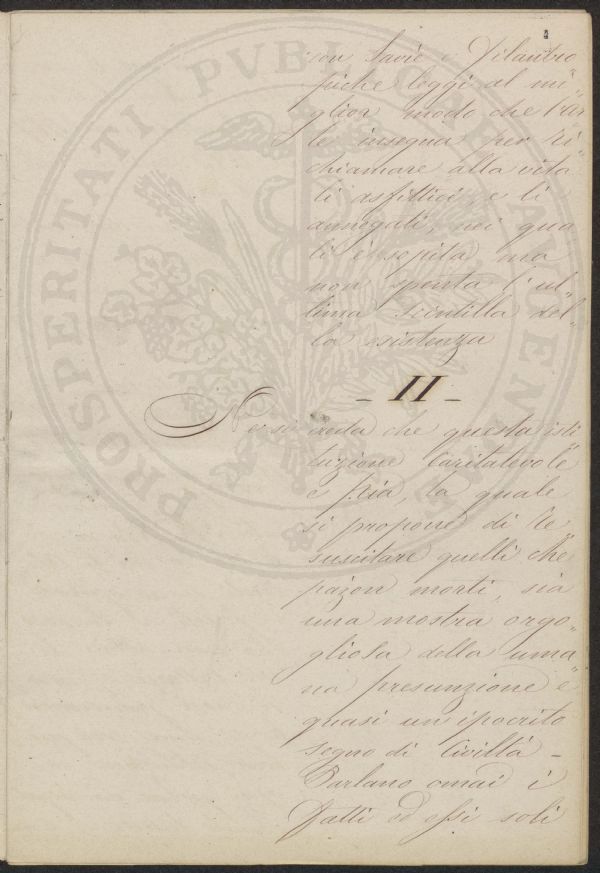 4
con savie e filantro
piche leggi al mi„
glior modo che l'ar
te insegna per ri„
chiamare alla vita
li asfittici, e li
annegati, nei qua
li è sopita ma
non spenta l'ul„
tima scintilla del„
la esistenza
– II –
Nè si creda che questa isti
tuzione caritatevole
e pia, la quale
si propone di re„
suscitare quelli che
pajon morti, sia
una mostra orgo„
gliosa della uma„
na presunzione e
quasi un ipocrito
segno di Civiltà –
Parlano omai i
fatti ed essi soli
PROSPERITATI PVBLICAE AVGENDAE